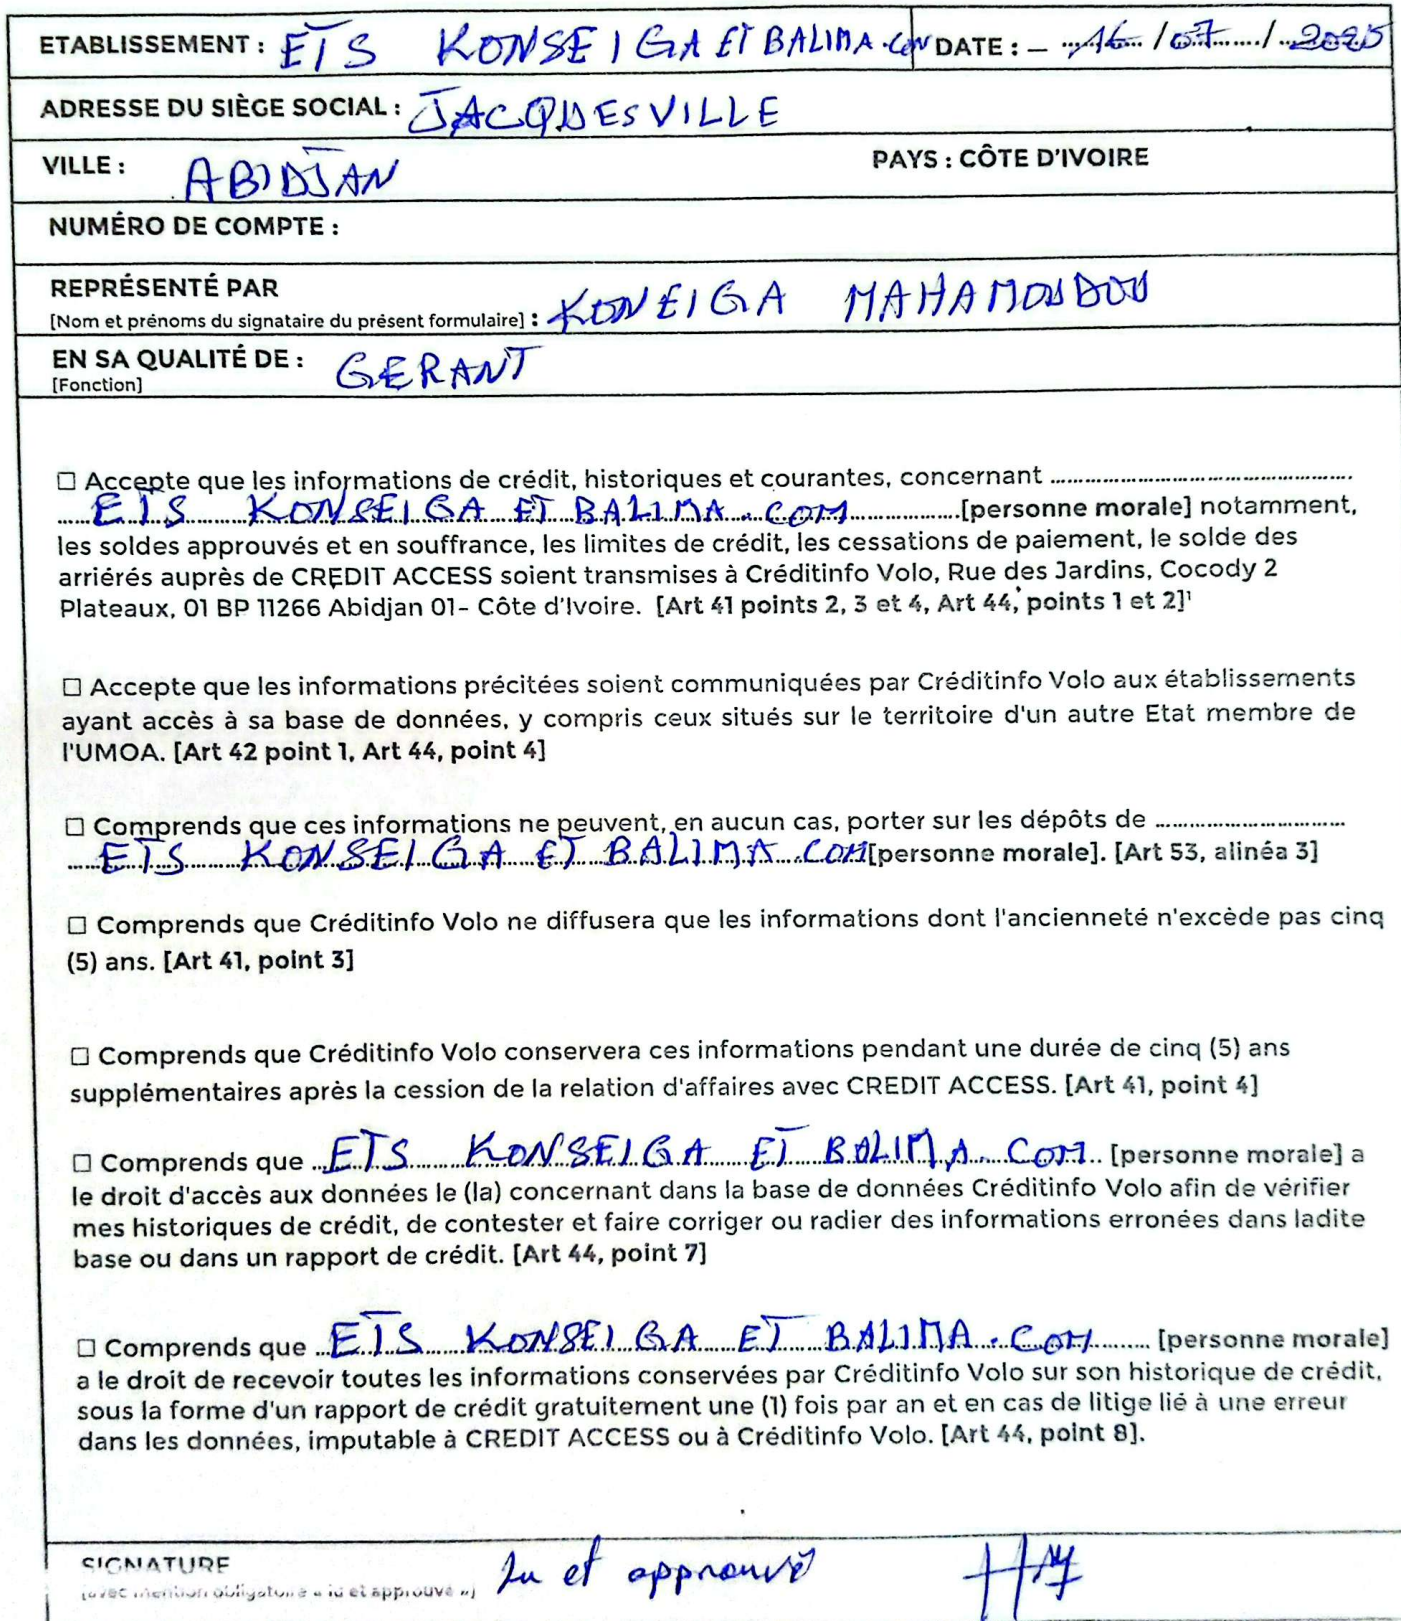 ETABLISSEMENT : ETS KONSEIGA ET BALIMA.COM DATE : – 16 / 07 / 2025
ADRESSE DU SIÈGE SOCIAL : JACQUESVILLE
VILLE : ABIDJAN PAYS : CÔTE D'IVOIRE
NUMÉRO DE COMPTE :
REPRÉSENTÉ PAR
[Nom et prénoms du signataire du présent formulaire] : KONEIGA MAHAMOUDOU
EN SA QUALITÉ DE : GERANT
[Fonction]
☐ Accepte que les informations de crédit, historiques et courantes, concernant ..........
ETS KONSEIGA ET BALIMA.COM [personne morale] notamment,
les soldes approuvés et en souffrance, les limites de crédit, les cessations de paiement, le solde des
arriérés auprès de CREDIT ACCESS soient transmises à Créditinfo Volo, Rue des Jardins, Cocody 2
Plateaux, 01 BP 11266 Abidjan 01- Côte d'Ivoire. [Art 41 points 2, 3 et 4, Art 44, points 1 et 2]¹
☐ Accepte que les informations précitées soient communiquées par Créditinfo Volo aux établissements
ayant accès à sa base de données, y compris ceux situés sur le territoire d'un autre Etat membre de
l'UMOA. [Art 42 point 1, Art 44, point 4]
☐ Comprends que ces informations ne peuvent, en aucun cas, porter sur les dépôts de ..........
ETS KONSEIGA ET BALIMA.COM [personne morale]. [Art 53, alinéa 3]
☐ Comprends que Créditinfo Volo ne diffusera que les informations dont l'ancienneté n'excède pas cinq
(5) ans. [Art 41, point 3]
☐ Comprends que Créditinfo Volo conservera ces informations pendant une durée de cinq (5) ans
supplémentaires après la cession de la relation d'affaires avec CREDIT ACCESS. [Art 41, point 4]
☐ Comprends que ETS KONSEIGA ET BALIMA.COM [personne morale] a
le droit d'accès aux données le (la) concernant dans la base de données Créditinfo Volo afin de vérifier
mes historiques de crédit, de contester et faire corriger ou radier des informations erronées dans ladite
base ou dans un rapport de crédit. [Art 44, point 7]
☐ Comprends que ETS KONSEIGA ET BALIMA.COM [personne morale]
a le droit de recevoir toutes les informations conservées par Créditinfo Volo sur son historique de crédit,
sous la forme d'un rapport de crédit gratuitement une (1) fois par an et en cas de litige lié à une erreur
dans les données, imputable à CREDIT ACCESS ou à Créditinfo Volo. [Art 44, point 8].
SIGNATURE
[avec mention obligatoire « lu et approuvé »] Lu et approuvé